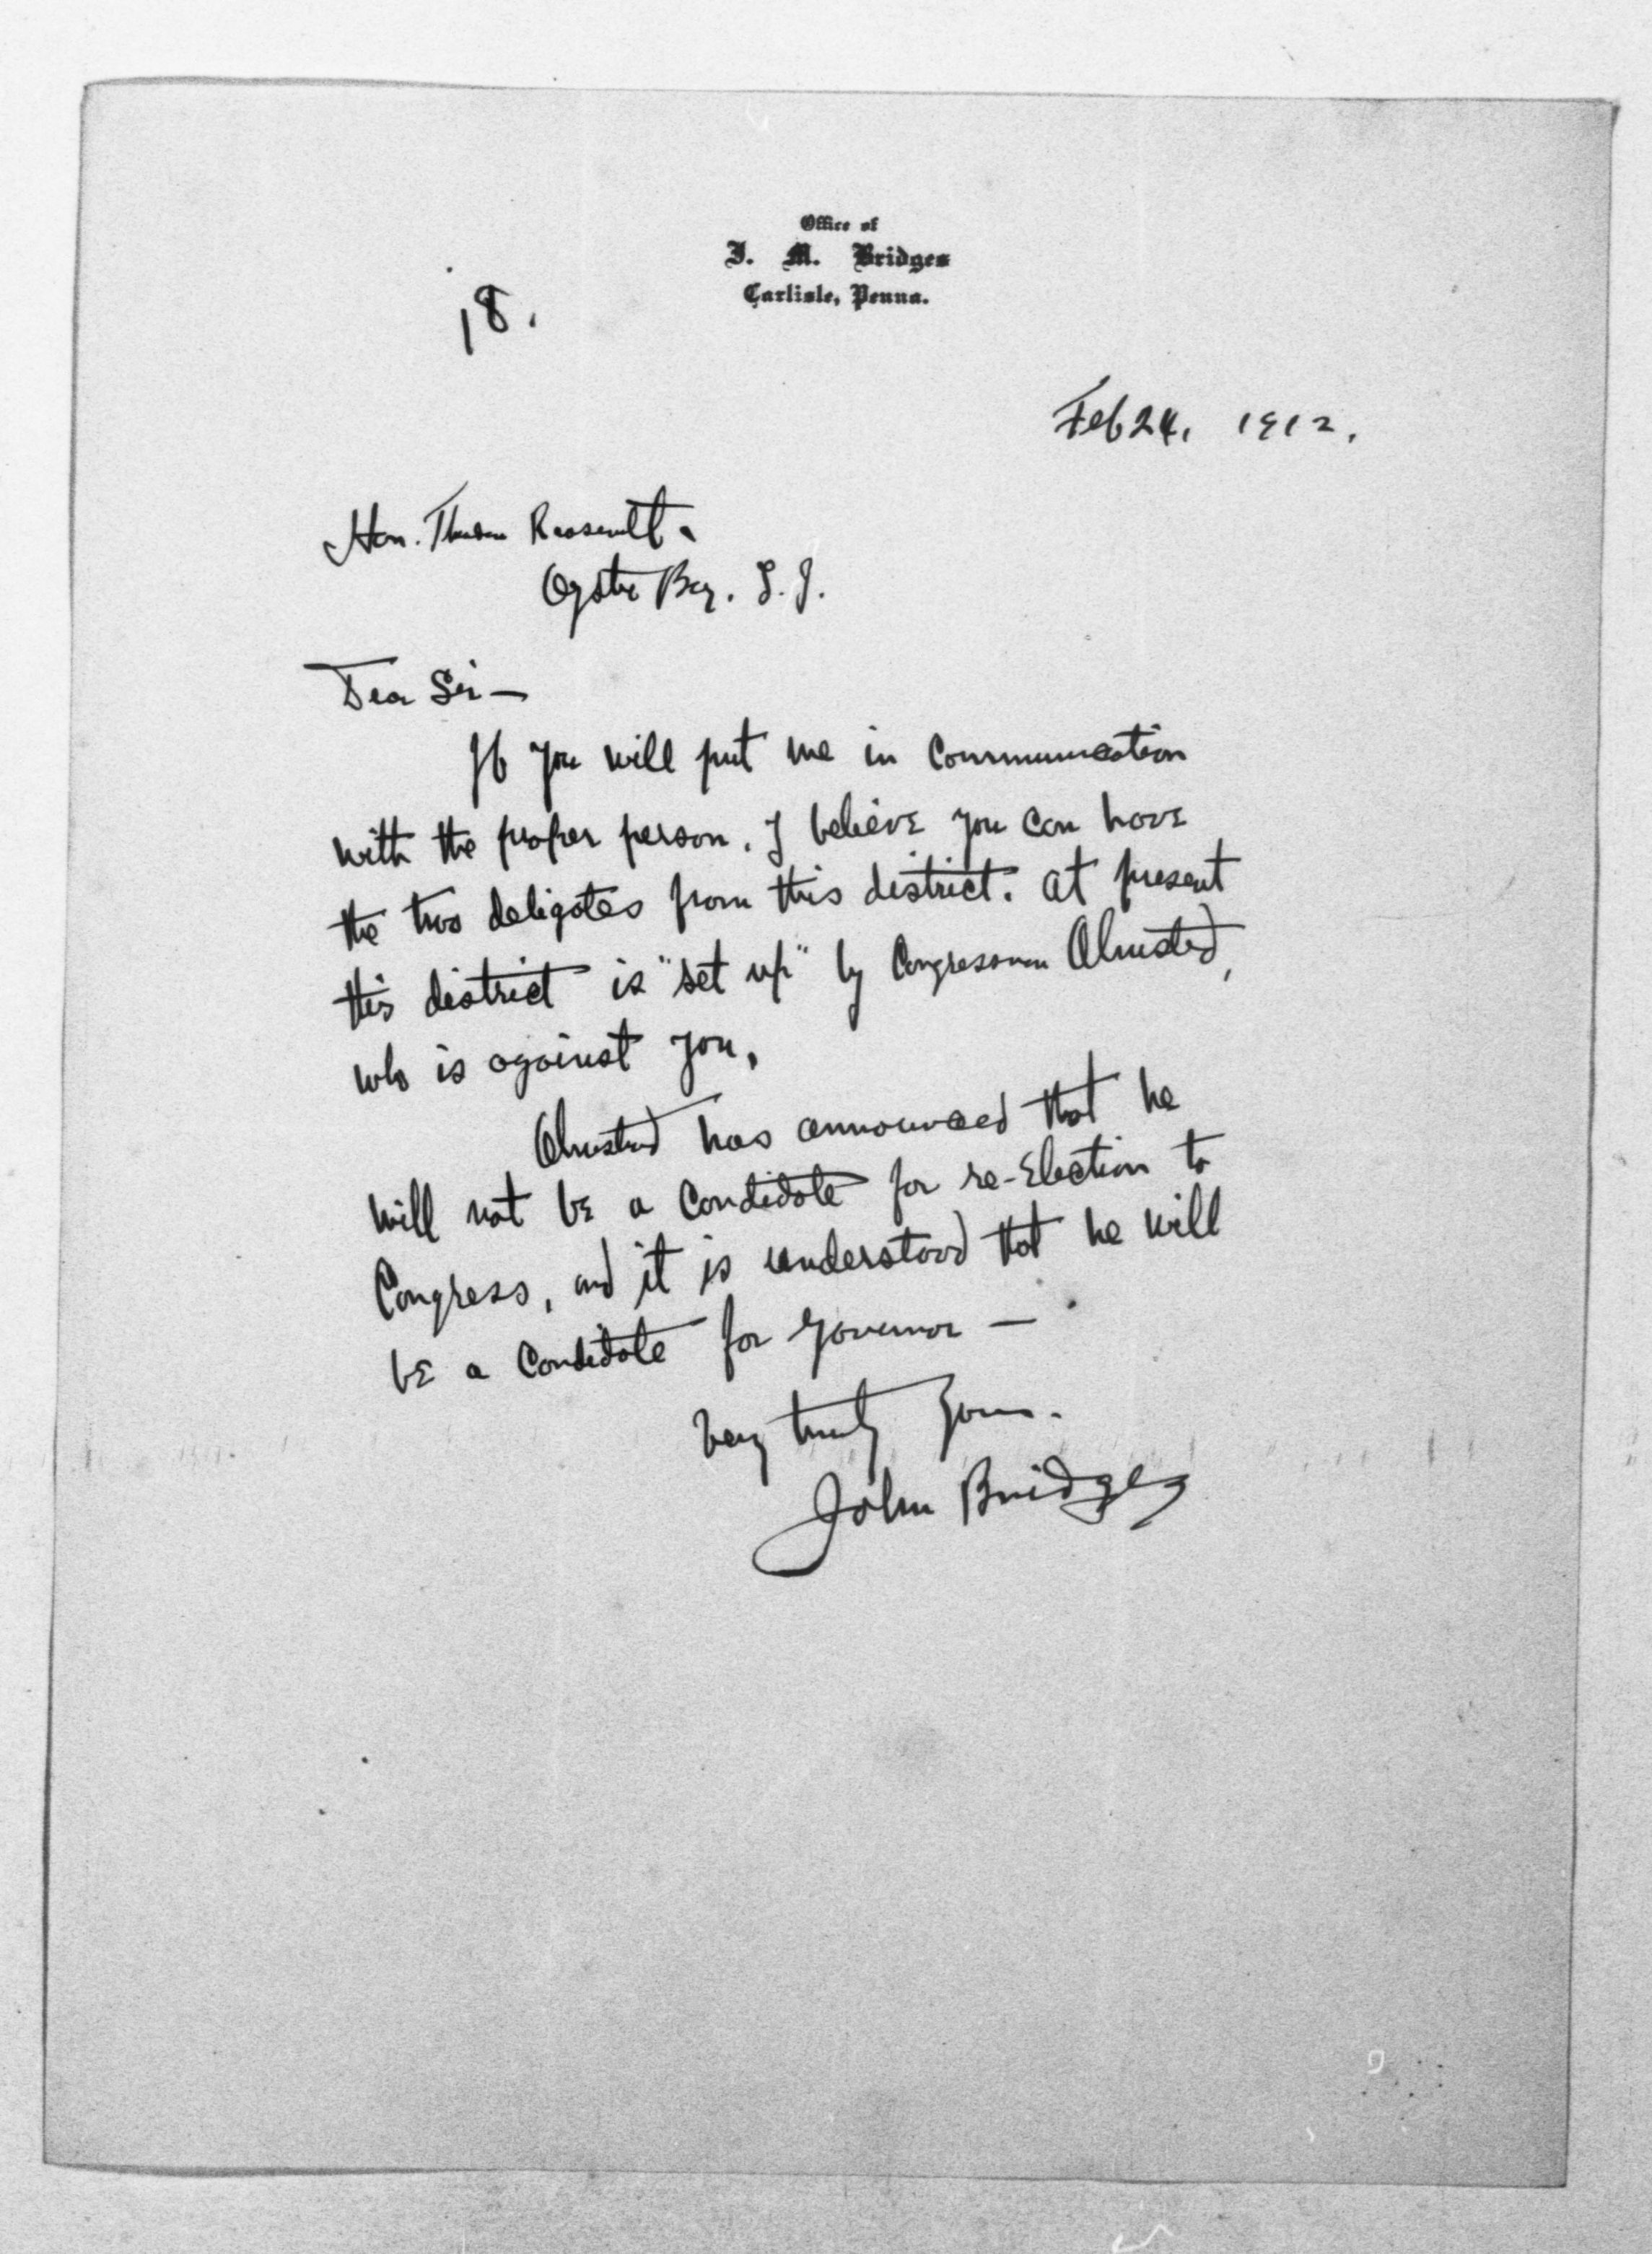 Office of
J. M. Bridges
Carlisle, Penna.
18.
Feb 24, 1912.
Hon. Theodore Roosevelt.
Oyster Bay. L. I.
Dear Sir —
If you will put me in communication
with the proper person, I believe you can have
the two deligates from this district. At present
this district is "set up" by Congressman Olmsted,
who is against you.
Olmsted has announced that he
will not be a candidate for re-election to
Congress, and it is understood that he will
be a candidate for governor —
Very truly yours.
John Bridges